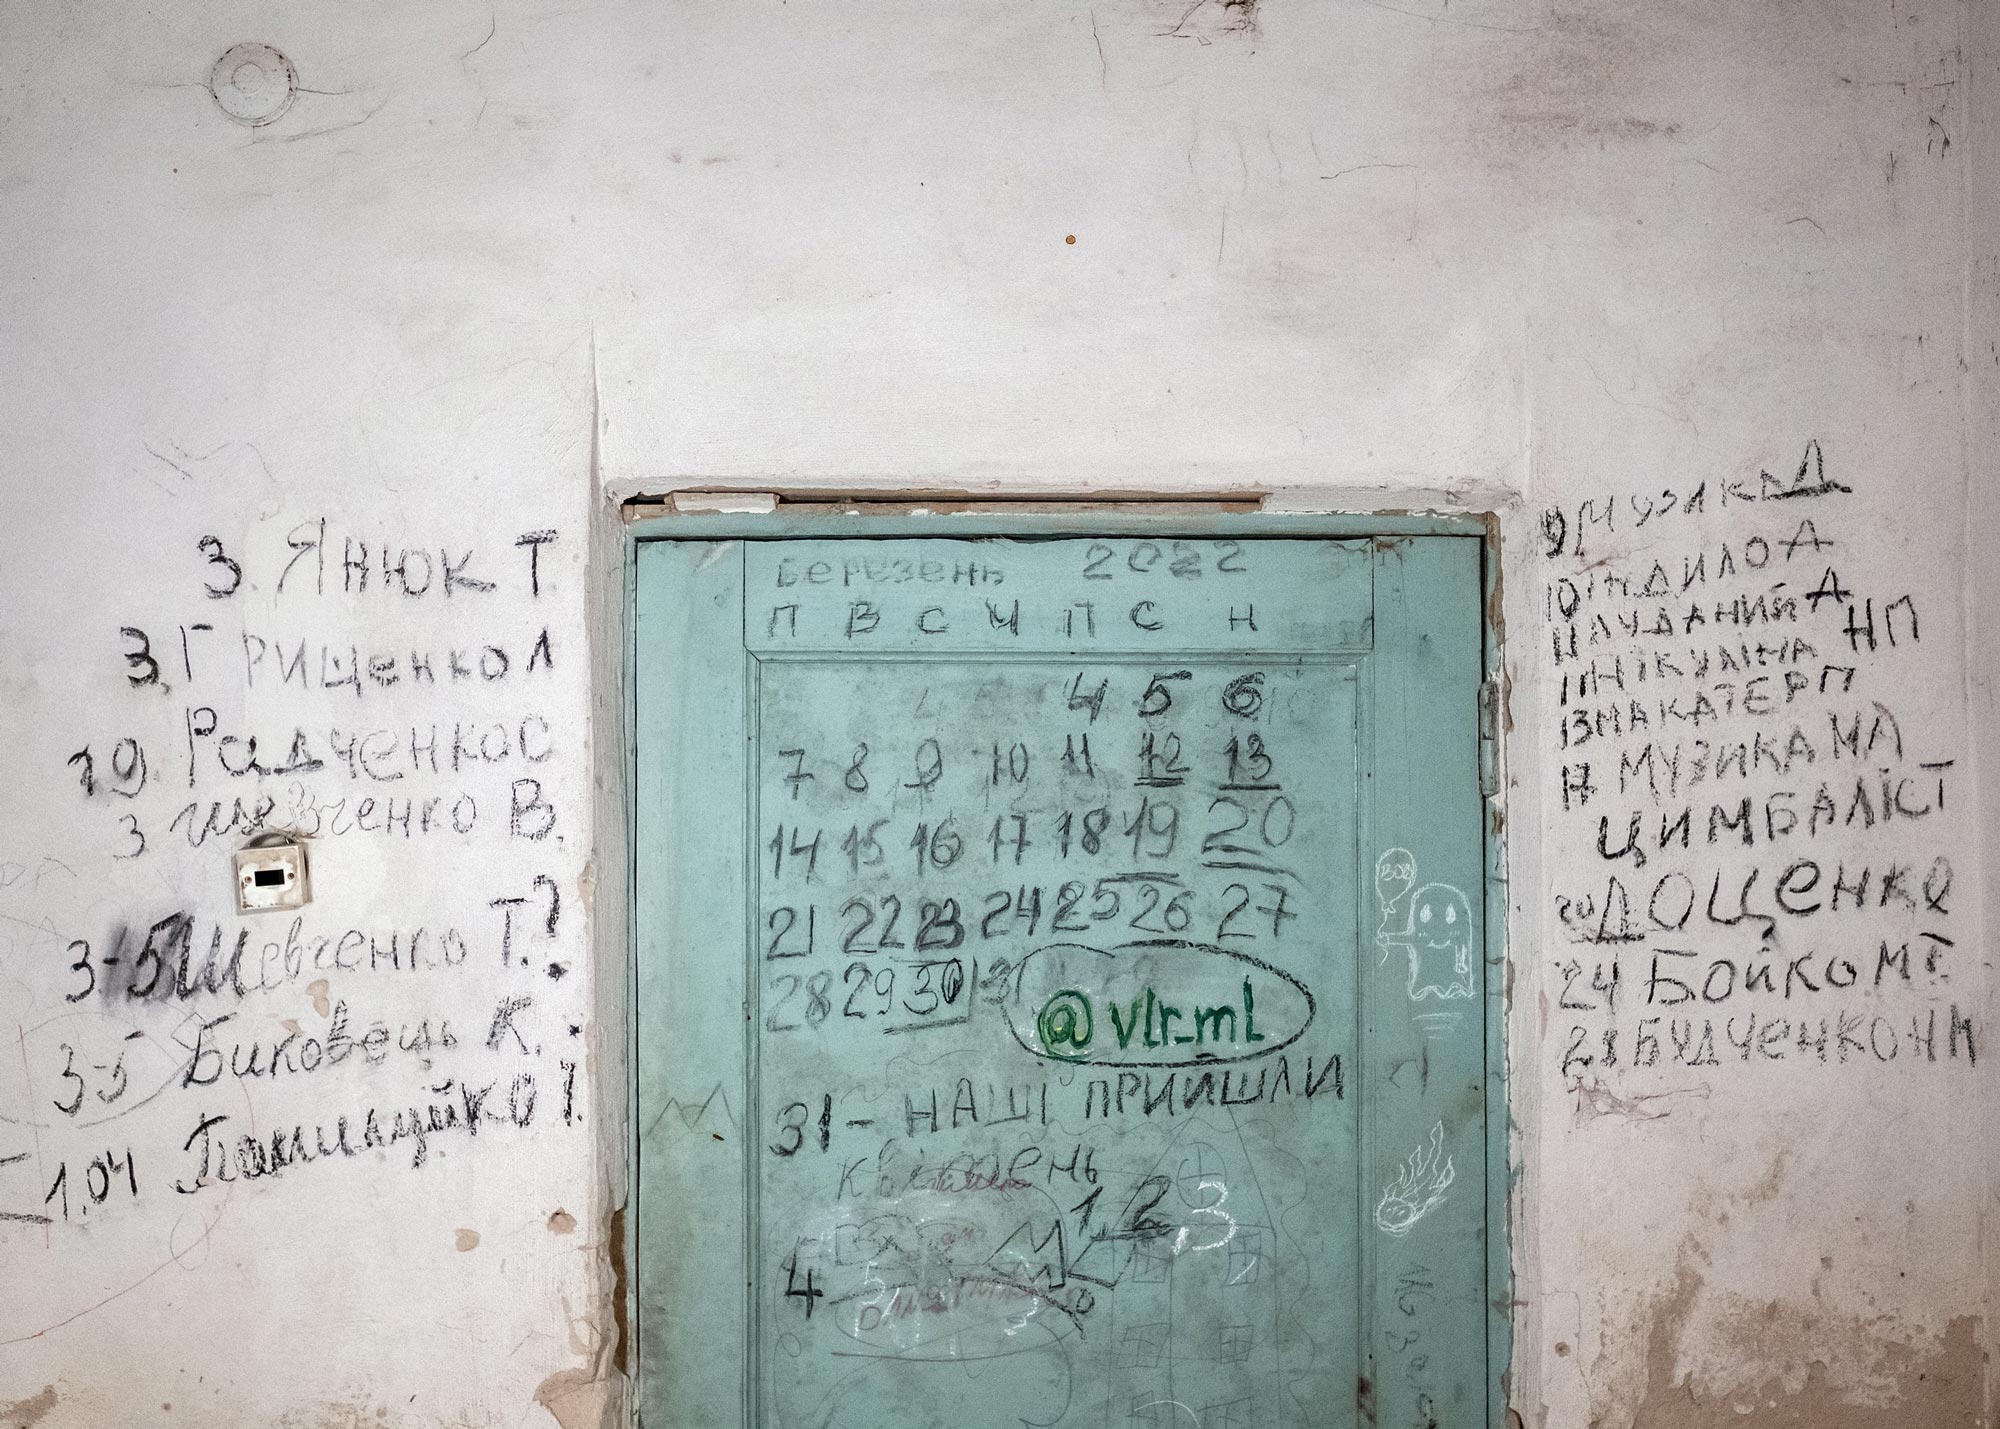 3. Янюк Т.
3. Грищенко Л
19. Радченко С
3 Шевченко В.
3-5 Шевченко Т.?
3-5 Биковець К.
1.04
Березень 2022
П В С Ч П С Н
4 5 6
7 8 9 10 11 12 13
14 15 16 17 18 19 20
21 22 23 24 25 26 27
28 29 30 31
@vlr_ml
31 - НАШІ ПРИИШЛИ
квітень
1 2 3
4
BOO
9 МУЗИКА Д
10 ІНДИЛО А
11 АУДАНИЙ А
11 НІКУЛІНА НП
13 МАКАТЕР П
17 МУЗИКА МА
ЦИМБАЛІСТ
20 ДОЦЕНКО
24 БОЙКО МТ.
28 БУДЧЕНКО НМ